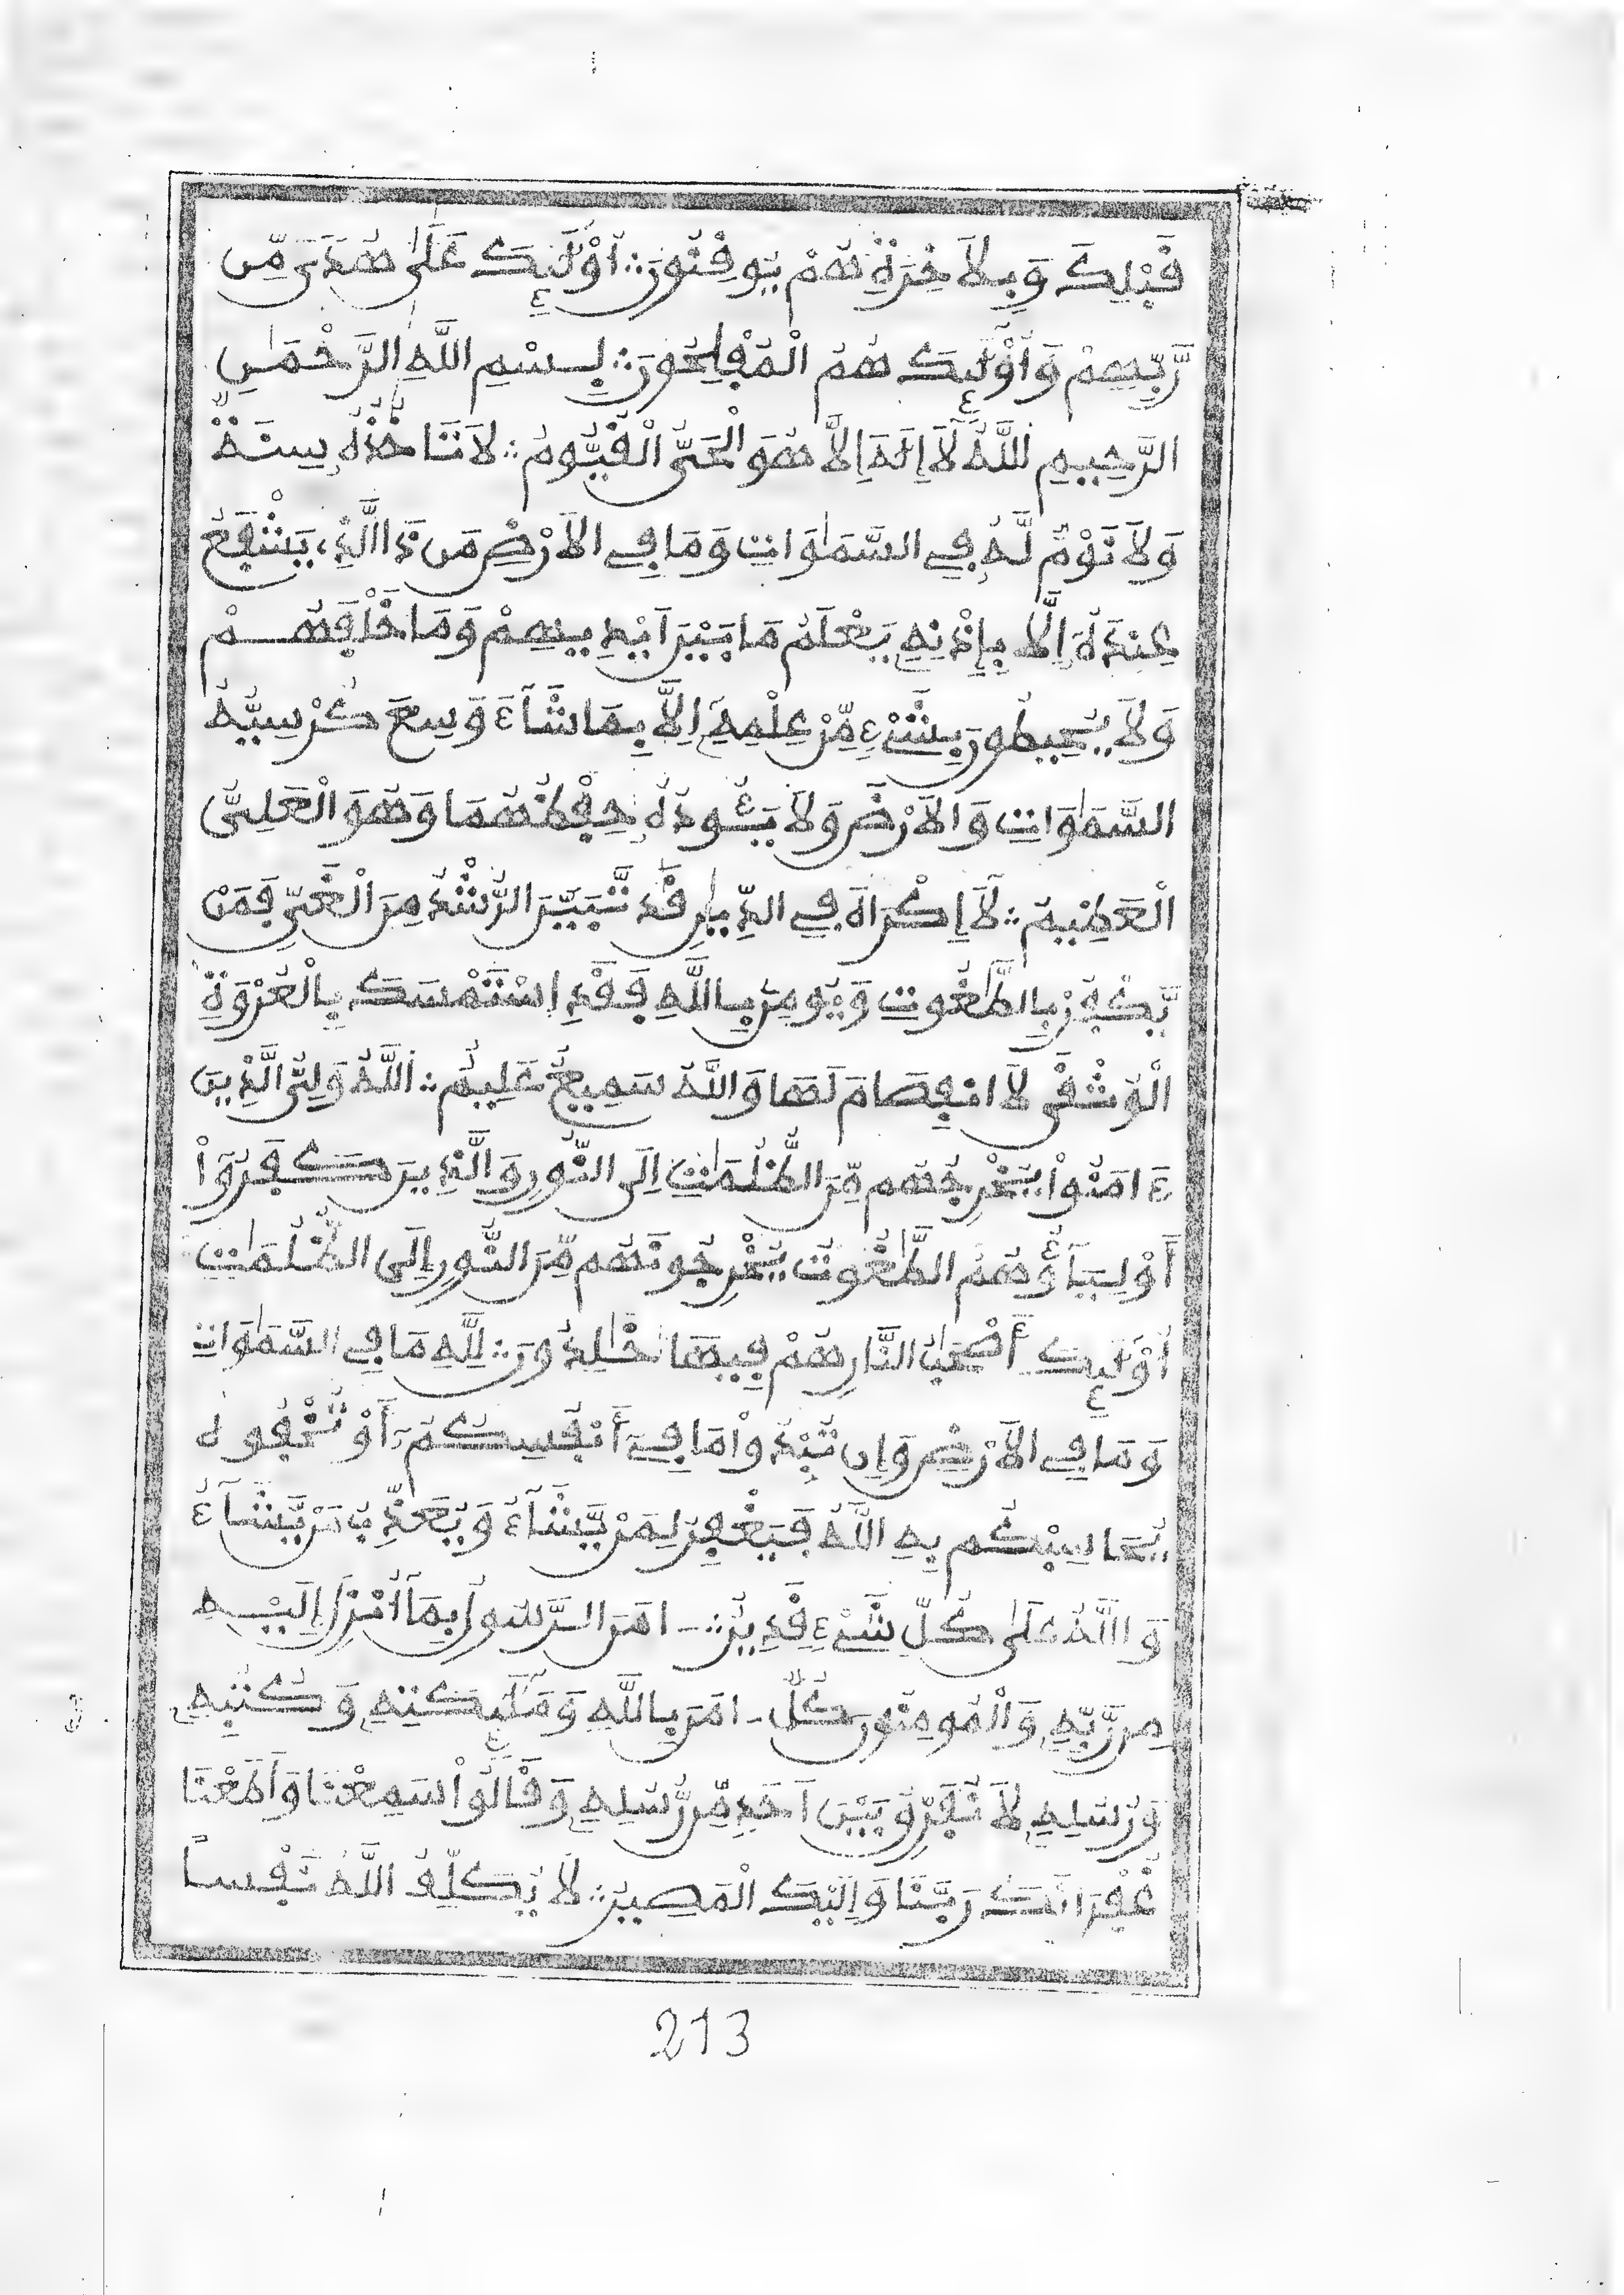 قَبْلِكَ وَبِالاَخِرَةِ هُمْ يُوقِنُونَ ؞ أُوْلَئِكَ عَلَىٰ هُدىً مِّن
رَّبِّهِمْ وَأُوْلَئِكَ هُمُ الْمُفْلِحُونَ ؞ بِسْمِ اللَّهِ الرَّحْمَٰنِ
الرَّحِيمِ اللَّهُ لَآ إِلَهَ إِلاَّ هُوَ الْحَيُّ الْقَيُّومُ ؞ لاَ تَاخُذُهُ سِنَةٌ
وَلاَ نَوْمٌ لَّهُ فِي السَّمَٰوَاتِ وَمَا فِي الاَرْضِ مَن ذَا الَّذِي يَشْفَعُ
عِندَهُ إِلاَّ بِإِذْنِهِ يَعْلَمُ مَا بَيْنَ أَيْدِيهِمْ وَمَا خَلْفَهُمْ
وَلاَ يُحِيطُونَ بِشَيْءٍ مِّنْ عِلْمِهِ إِلاَّ بِمَا شَآءَ وَسِعَ كُرْسِيُّهُ
السَّمَٰوَاتِ وَالاَرْضَ وَلاَ يَـُٔودُهُ حِفْظُهُمَا وَهُوَ الْعَلِيُّ
الْعَظِيمُ ؞ لَآ إِكْرَاهَ فِي الدِّينِ قَد تَّبَيَّنَ الرُّشْدُ مِنَ الْغَيِّ فَمَنْ
يَّكْفُرْ بِالطَّٰغُوتِ وَيُومِنْ بِاللَّهِ فَقَدِ اسْتَمْسَكَ بِالْعُرْوَةِ
الْوُثْقَىٰ لاَ انفِصَامَ لَهَا وَاللَّهُ سَمِيعٌ عَلِيمٌ ؞ اللَّهُ وَلِيُّ الَّذِينَ
ءَامَنُواْ يُخْرِجُهُم مِّنَ الظُّلُمَٰتِ إِلَى النُّورِ وَالَّذِينَ كَفَرُوٓاْ
أَوْلِيَآؤُهُمُ الطَّٰغُوتُ يُخْرِجُونَهُم مِّنَ النُّورِ إِلَى الظُّلُمَٰتِ
أُوْلَئِكَ أَصْحَٰبُ النَّارِ هُمْ فِيهَا خَٰلِدُونَ ؞ لِلَّهِ مَا فِي السَّمَٰوَاتِ
وَمَا فِي الاَرْضِ وَإِن تُبْدُواْ مَا فِيٓ أَنفُسِكُمُۥٓ أَوْ تُخْفُوهُ
يُحَاسِبْكُم بِهِ اللَّهُ فَيَغْفِرْ لِمَنْ يَّشَآءُ وَيُعَذِّبْ مَنْ يَّشَآءُ
وَاللَّهُ عَلَىٰ كُلِّ شَيْءٍ قَدِيرٌ ؞ ـامَنَ الرَّسُولُ بِمَآ أُنزِلَ إِلَيْهِ
مِن رَّبِّهِ وَالْمُومِنُونَ كُلٌّ ـامَنَ بِاللَّهِ وَمَلَٰئِكَتِهِ وَكُتُبِهِ
وَرُسُلِهِ لاَ نُفَرِّقُ بَيْنَ أَحَدٍ مِّن رُّسُلِهِ وَقَالُواْ سَمِعْنَا وَأَطَعْنَا
غُفْرَانَكَ رَبَّنَا وَإِلَيْكَ الْمَصِيرُ ؞ لاَ يُكَلِّفُ اللَّهُ نَفْساً
213